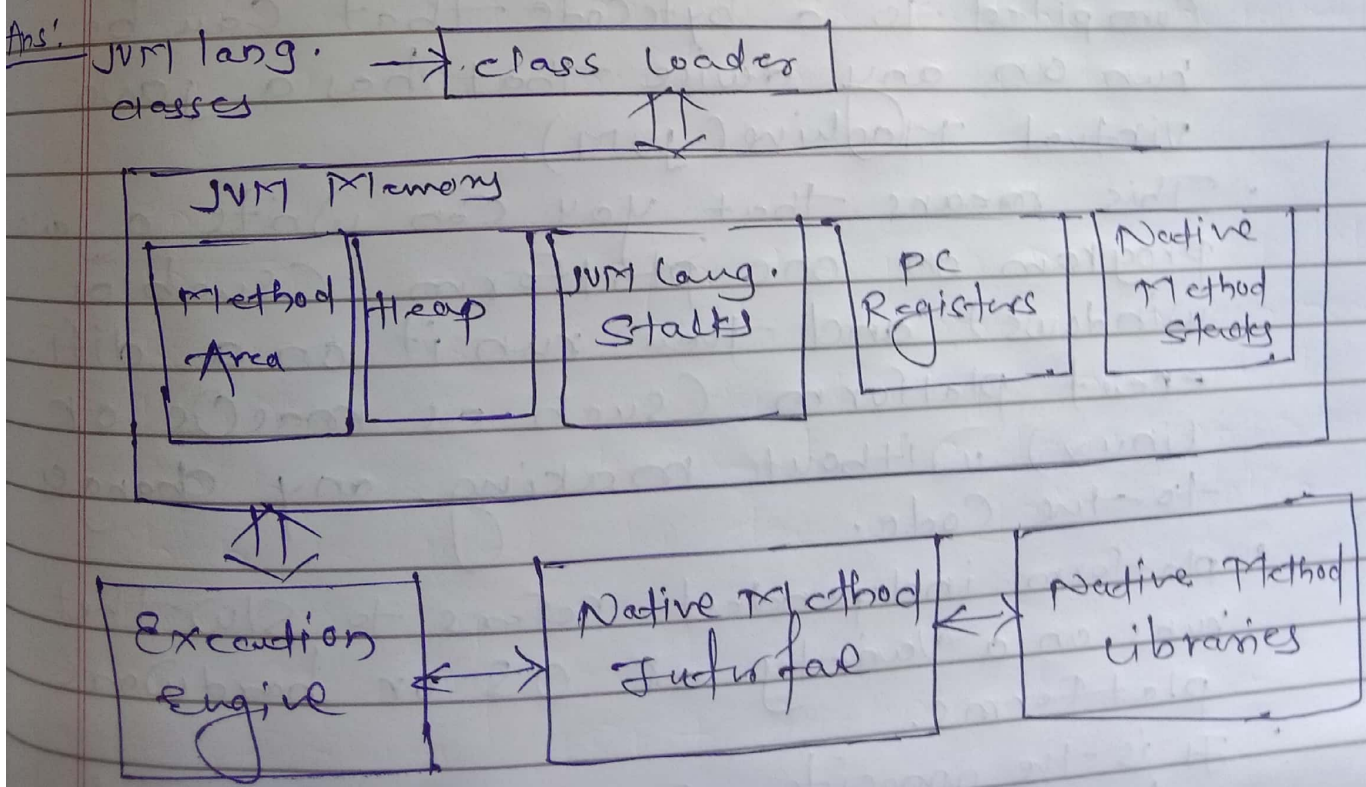 Ans:
JVM lang.
classes
class Loader
JVM Memory
Method
Area
Heap
JVM Lang.
Stacks
PC
Registers
Native
Method
Stacks
Execution
Engine
Native Method
Interface
Native Method
Libraries